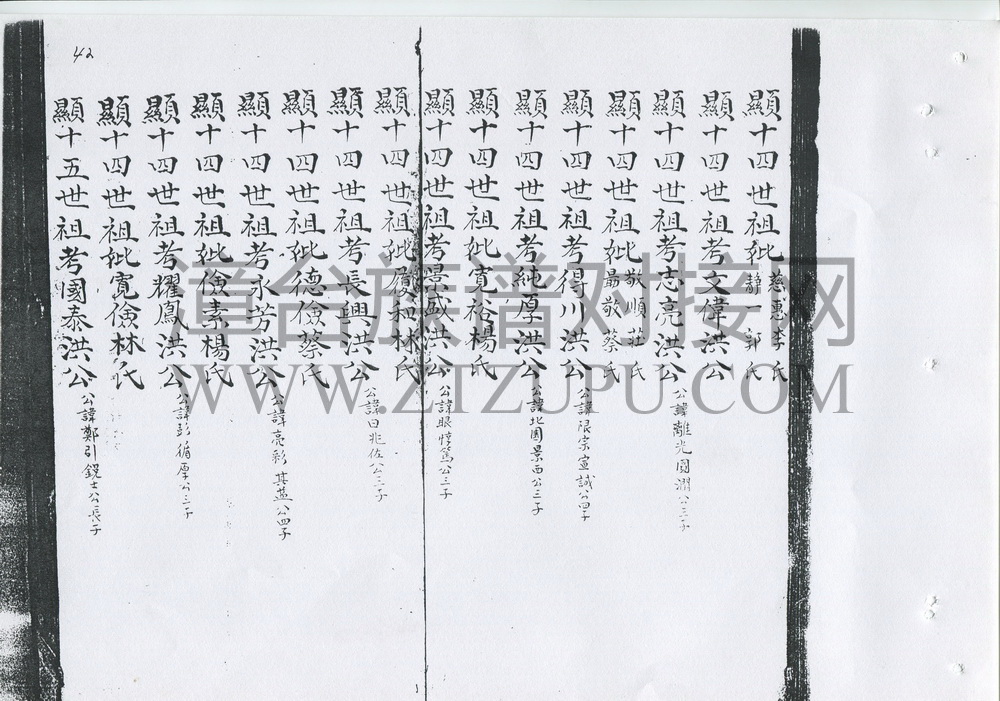 42
顯十四世祖妣慈惠李氏靜一郭氏
顯十四世祖考文偉洪公
顯十四世祖考志亮洪公公諱離光國潤公三子
顯十四世祖妣敬順莊氏最敬蔡氏
顯十四世祖考得川洪公公諱限宗宣誠公四子
顯十四世祖考純厚洪公公諱北圃景西公三子
顯十四世祖妣寬裕楊氏
顯十四世祖考景盛洪公公諱眼惇篤公三子
顯十四世祖妣和林氏
顯十四世祖考長興洪公公諱曰兆佐公三子
顯十四世祖妣德儉蔡氏
顯十四世祖考永芳洪公公諱亮彩其燕公四子
顯十四世祖妣儉素楊氏
顯十四世祖考耀鳳洪公公諱彭循厚公三子
顯十四世祖妣寬儉林氏
顯十五世祖考國泰洪公公諱鄭引士公長子
漳台族谱对接网
WWW.ZTZUPU.COM